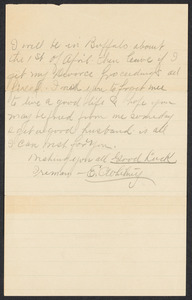 I will be in Buffalo about
the 1st of April then leave if I
get my divorce proceedings all
I wish you to forget me
to live a good life & hope you
may be freed from me someday
& get a good husband is all
I can wish for you.
Wishing you all Good Luck
I remain